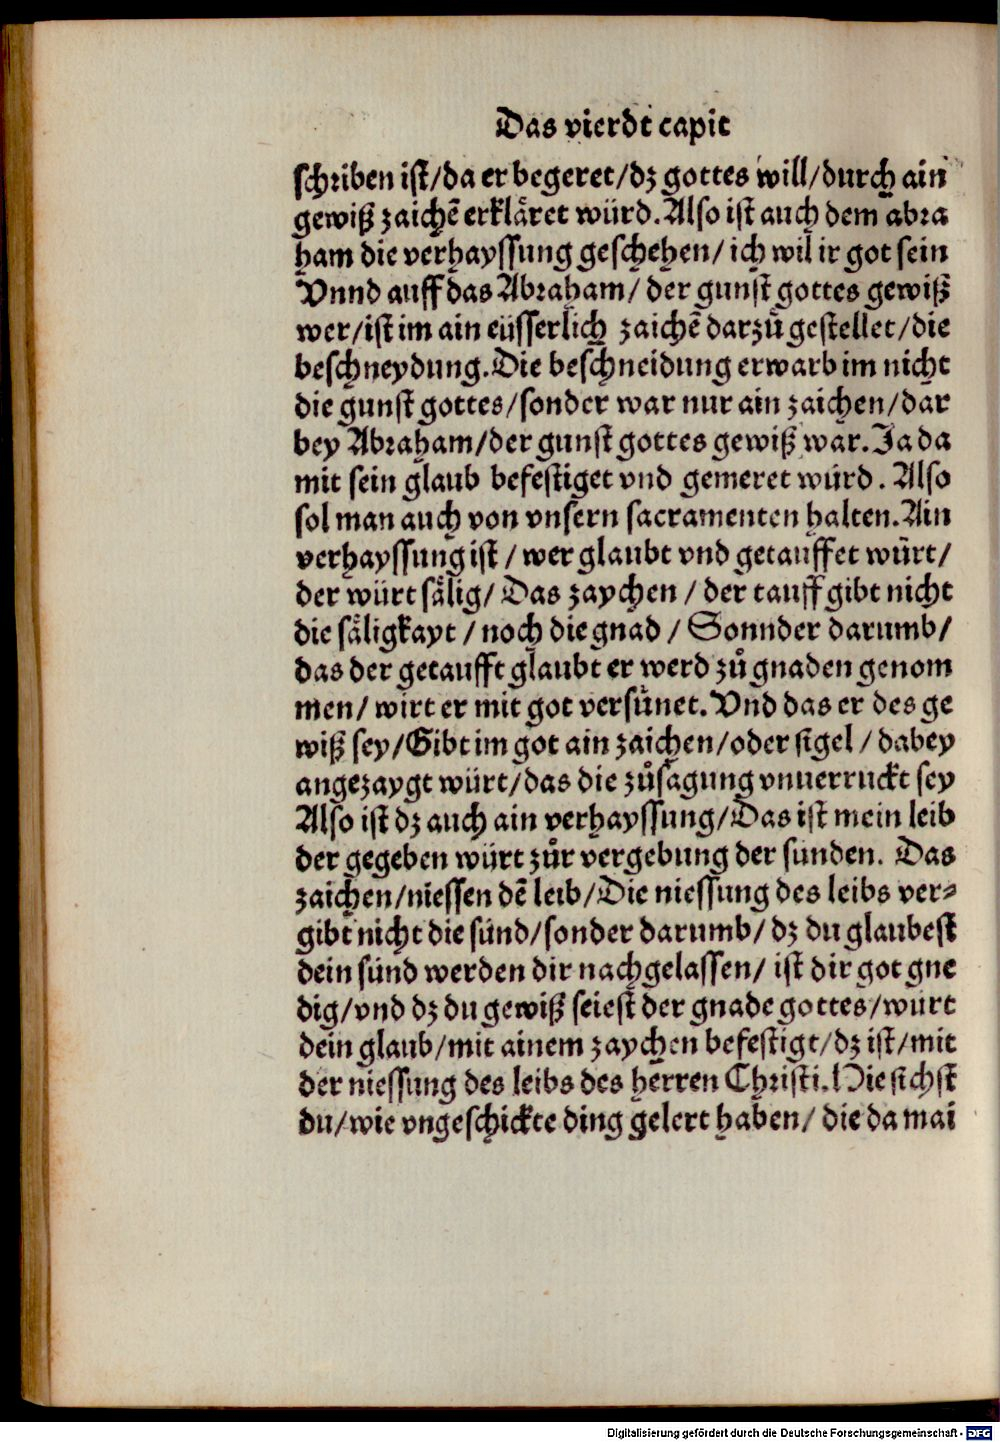 Das vierdt capit
schriben ist/da er begeret/dz gottes will/durch ain
gewiß zaichē erkläret würd. Also ist auch dem abra
ham die verhayssung geschehen/ ich wil ir got sein
Vnnd auff das Abraham/ der gunst gottes gewiß
wer/ist im ain eüsserlich zaichē darzů gestellet/die
beschneydung. Die beschneidung erwarb im nicht
die gunst gottes/sonder war nur ain zaichen/dar
bey Abraham/der gunst gottes gewiß war. Ja da
mit sein glaub befestiget vnd gemeret würd. Also
sol man auch von vnsern sacramenten halten. Ain
verhayssung ist / wer glaubt vnd getauffet würt/
der würt sälig/ Das zaychen / der tauff gibt nicht
die säligkayt / noch die gnad / Sonnder darumb/
das der getaufft glaubt er werd zů gnaden genom
men/ wirt er mit got versünet. Vnd das er des ge
wiß sey/Gibt im got ain zaichen/oder sigel / dabey
angezaygt würt/das die zůsagung vnuerruckt sey
Also ist dz auch ain verhayssung/Das ist mein leib
der gegeben würt zůr vergebung der sunden. Das
zaichen/niessen dē leib/Die niessung des leibs ver⸗
gibt nicht die sünd/sonder darumb/ dz du glaubest
dein sünd werden dir nachgelassen/ ist dir got gne
dig/vnd dz du gewiß seiest der gnade gottes/würt
dein glaub/mit ainem zaychen befestigt/dz ist/mit
der niessung des leibs des herren Christi. Hie sichst
du/wie vngeschickte ding gelert haben/ die da mai
Digitalisierung gefördert durch die Deutsche Forschungsgemeinschaft - DFG